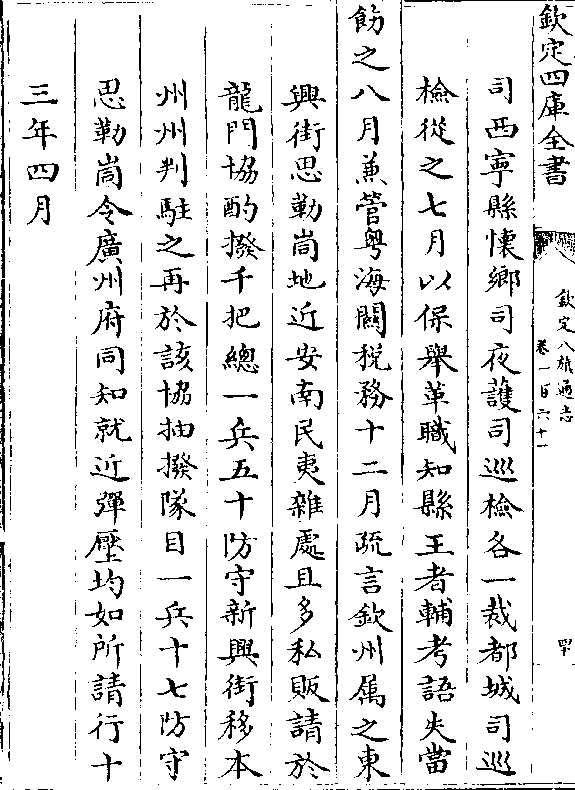 欽定四庫全書
欽定八旗通志
卷一百六十一
司西寧縣懷鄉司夜護司巡檢各一裁都城司巡
檢從之七月以保舉革職知縣王者輔考語失當
飭之八月兼管粤海關税務十二月疏言欽州屬之東
興街思勒崗地近安南民夷雜處且多私販請於
龍門協酌撥千把總一兵五十防守新興街移本
州州判駐之再於該協抽撥隊目一兵十七防守
思勒崗令廣州府同知就近彈壓均如所請行十
三年四月